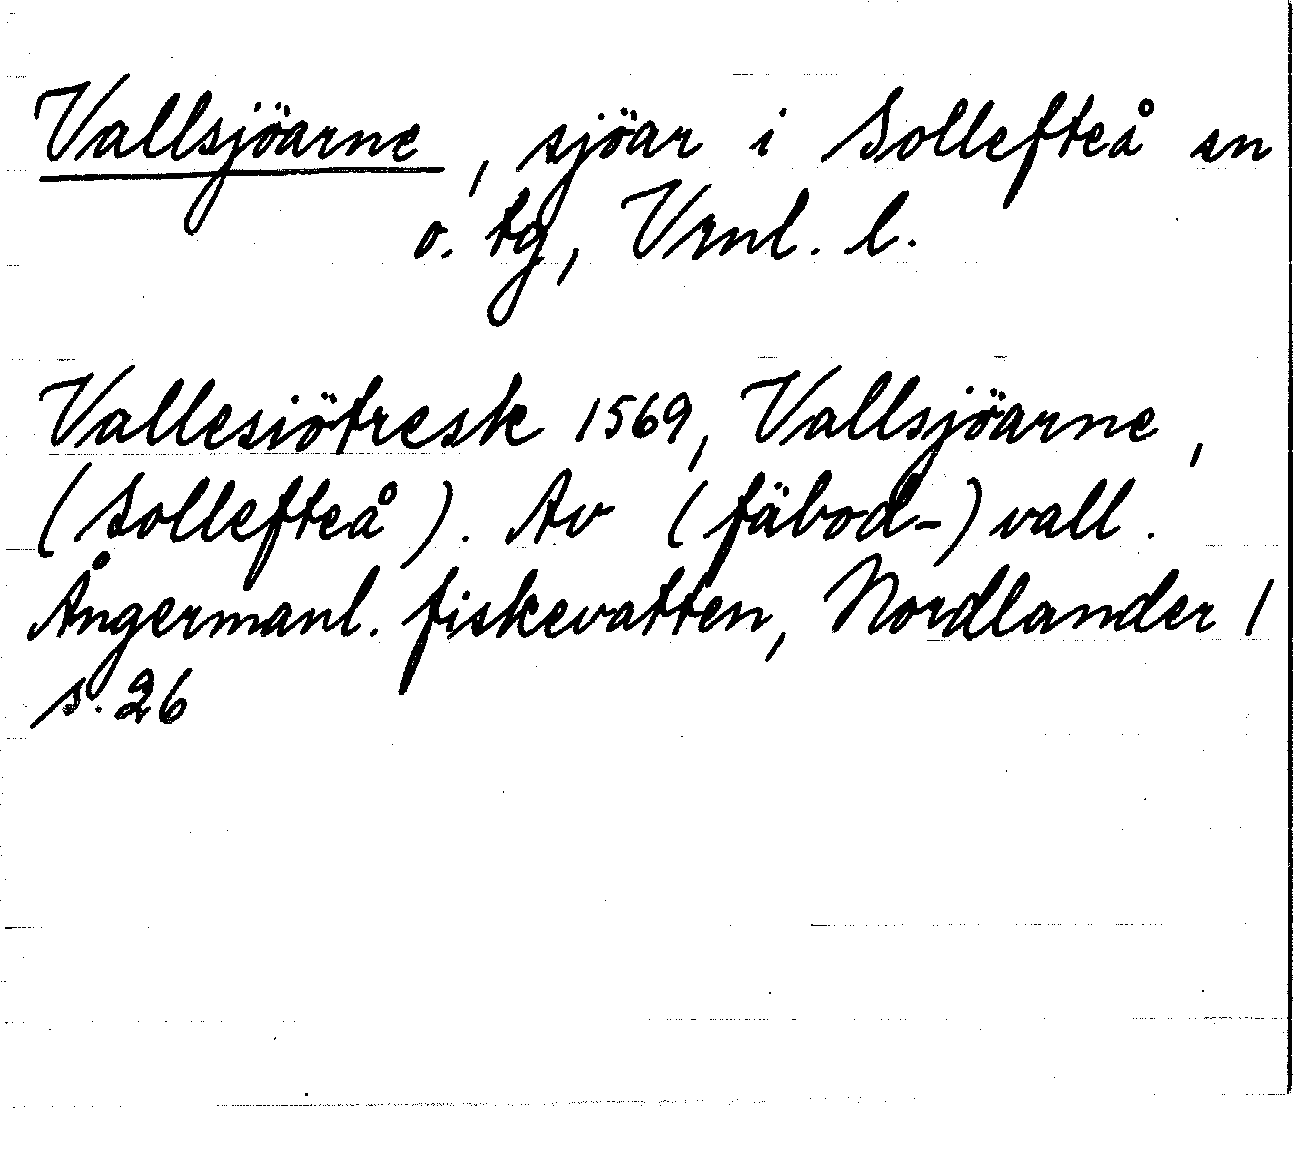 Vallsjöarne, sjöar i Sollefteå sn
o. tg, Vrnl. l.
Vallesiötresk 1569, Vallsjöarne,
(Sollefteå). Av (fäbod-) vall.
Ångermanl. fiskevatten, Nordlander 1
s. 26